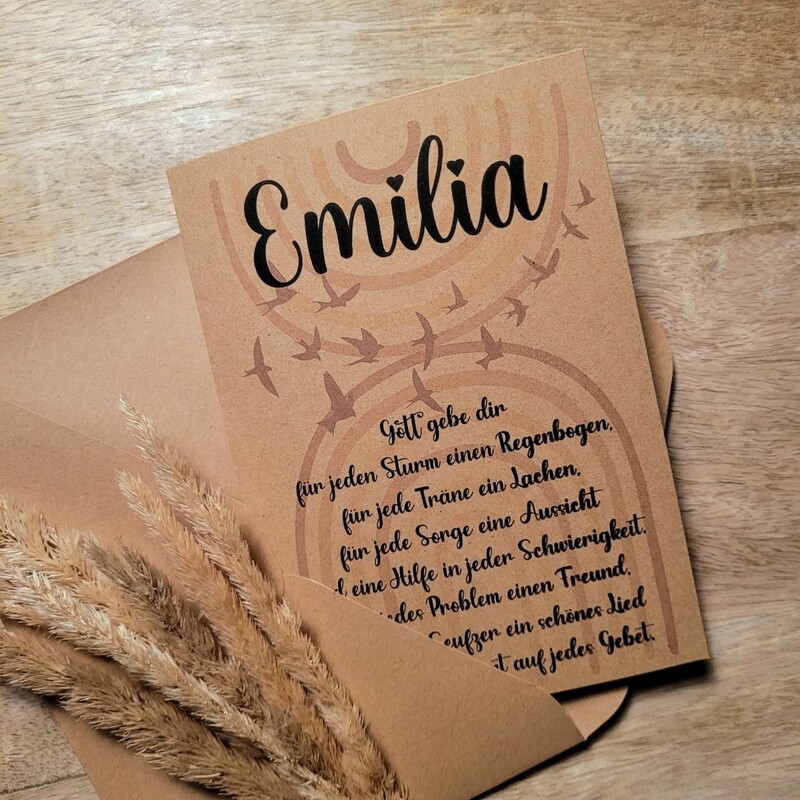 Emilia
Gott gebe dir
für jeden Sturm einen Regenbogen,
für jede Träne ein Lachen,
für jede Sorge eine Aussicht
eine Hilfe in jeder Schwierigkeit,
Problem einen Treund,
Seufzer ein schönes Lied
auf jedes Gebet.